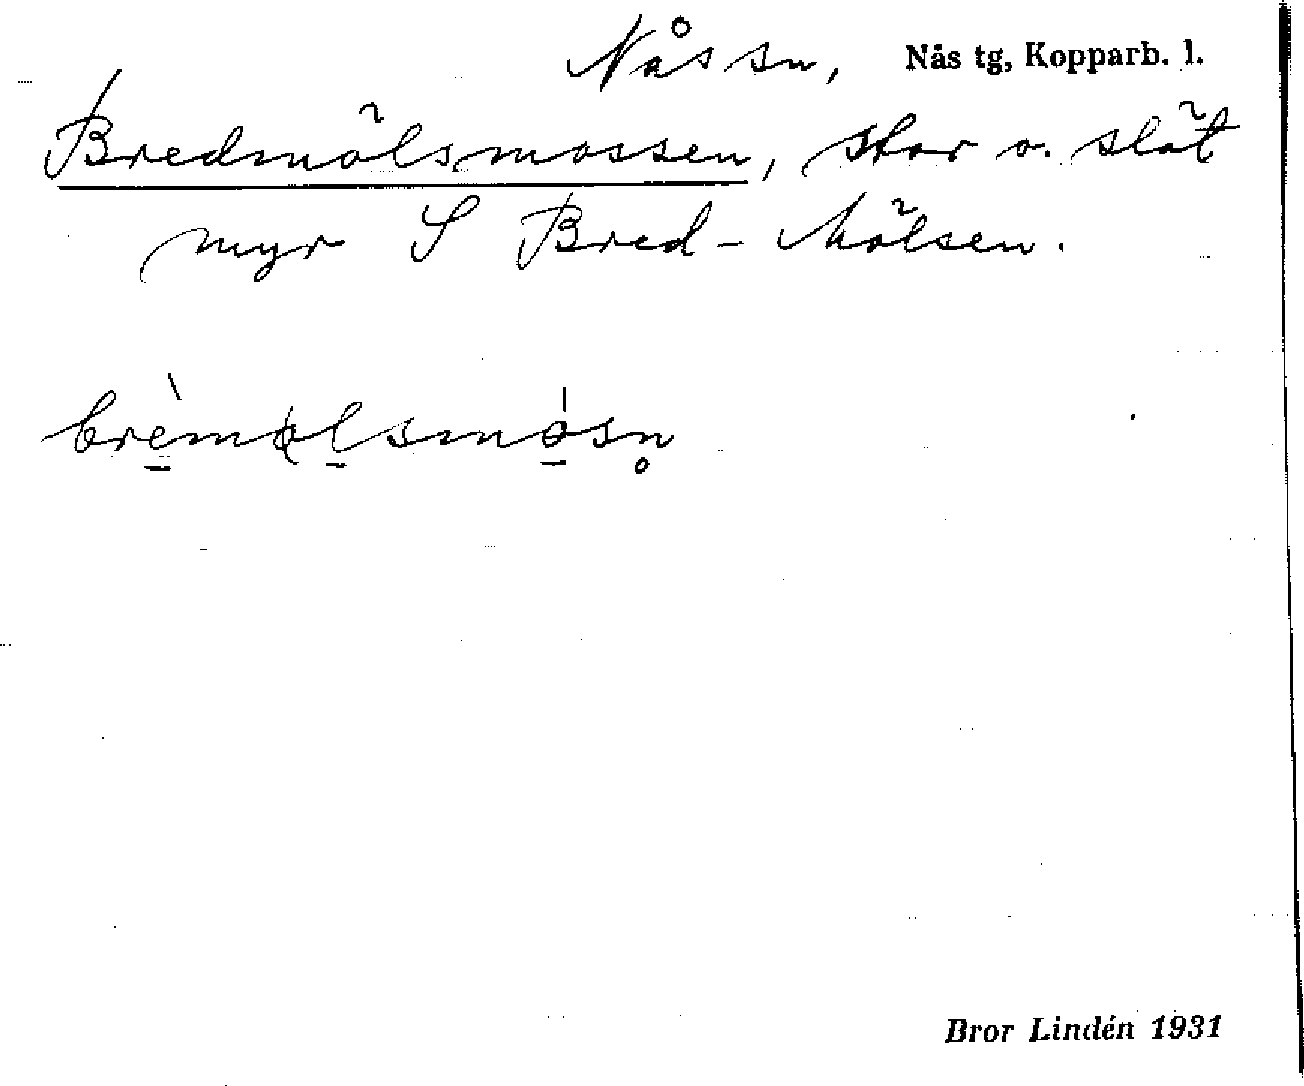 Nås sn, Nås tg, Kopparb. l.
Bredmölsmossen, stor o. slät
myr S Bred-Mölsen.
brè̠mφl̠smò̠sn̥
Bror Lindén 1931